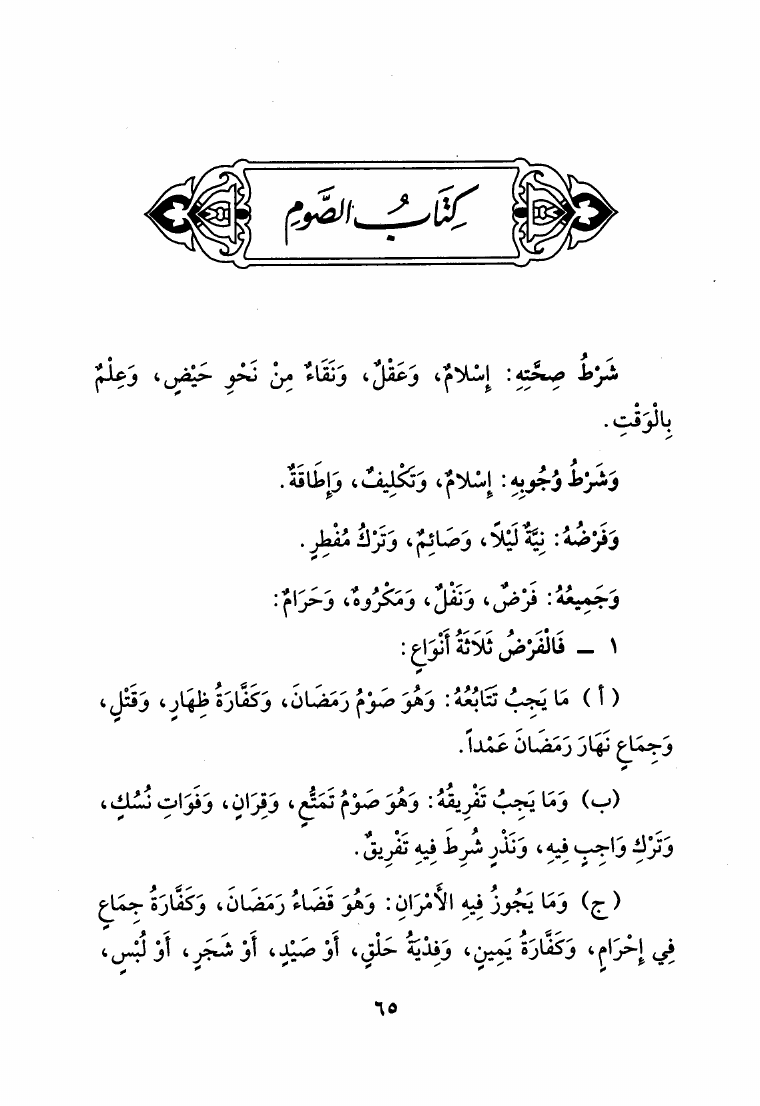 كِتَابُ الصَّوْمِ
شَرْطُ صِحَّتِهِ: إِسْلَامٌ، وَعَقْلٌ، وَنَقَاءٌ مِنْ نَحْوِ حَيْضٍ، وَعِلْمٌ
بِالْوَقْتِ.
وَشَرْطُ وُجُوبِهِ: إِسْلَامٌ، وَتَكْلِيفٌ، وَإِطَاقَةٌ.
وَفَرْضُهُ: نِيَّةٌ لَيْلاً، وَصَائِمٌ، وَتَرْكُ مُفْطِرٍ.
وَجَمِيعُهُ: فَرْضٌ، وَنَفْلٌ، وَمَكْرُوهٌ، وَحَرَامٌ:
١ ـ فَالْفَرْضُ ثَلَاثَةُ أَنْوَاعٍ:
(أ) مَا يَجِبُ تَتَابُعُهُ: وَهُوَ صَوْمُ رَمَضَانَ، وَكَفَّارَةُ ظِهَارٍ، وَقَتْلٍ،
وَجِمَاعِ نَهَارَ رَمَضَانَ عَمْداً.
(ب) وَمَا يَجِبُ تَفْرِيقُهُ: وَهُوَ صَوْمُ تَمَتُّعٍ، وَقِرَانٍ، وَفَوَاتِ نُسُكٍ،
وَتَرْكِ وَاجِبٍ فِيهِ، وَنَذْرٍ شُرِطَ فِيهِ تَفْرِيقٌ.
(ج) وَمَا يَجُوزُ فِيهِ الأَمْرَانِ: وَهُوَ قَضَاءُ رَمَضَانَ، وَكَفَّارَةُ جِمَاعٍ
فِي إِحْرَامٍ، وَكَفَّارَةُ يَمِينٍ، وَفِدْيَةُ حَلْقٍ، أَوْ صَيْدٍ، أَوْ شَجَرٍ، أَوْ لُبْسٍ،
٦٥